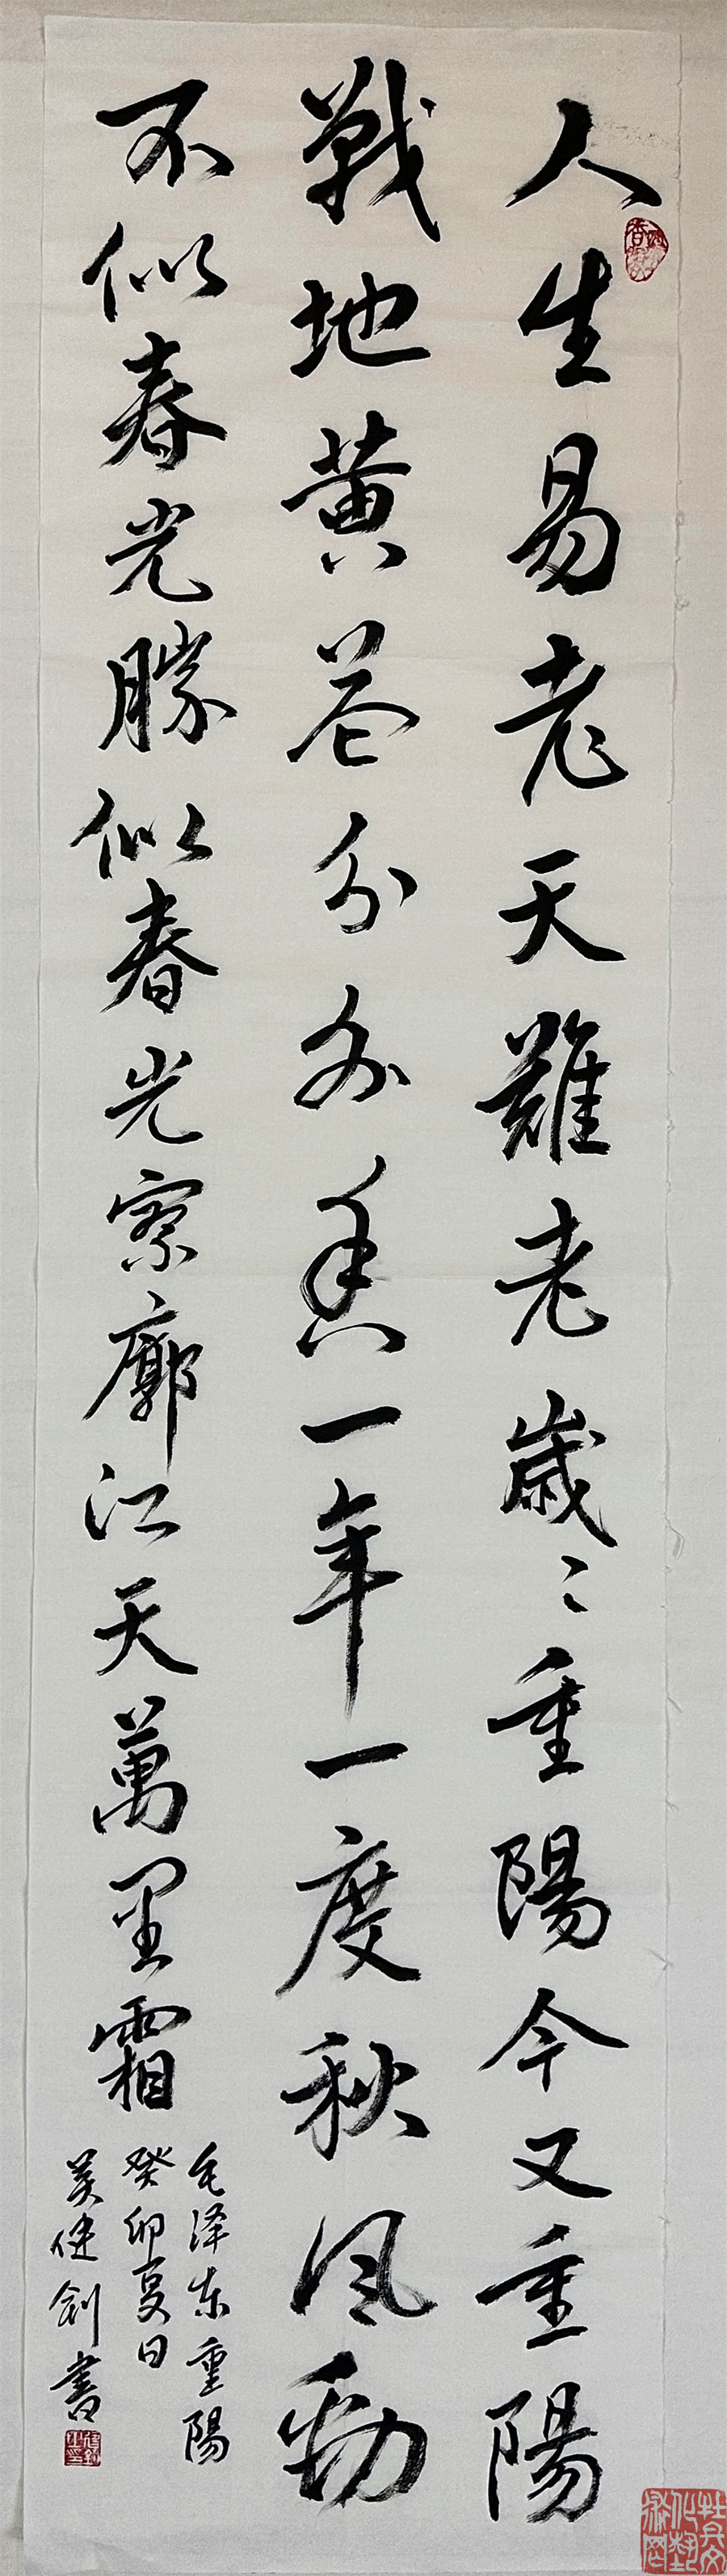 人生易老天難老歲〻重陽今又重陽
戰地黃花分外香一年一度秋风勁
不似春光勝似春光寥廓江天萬里霜
毛泽东重陽
癸卯夏日
吴健剑書